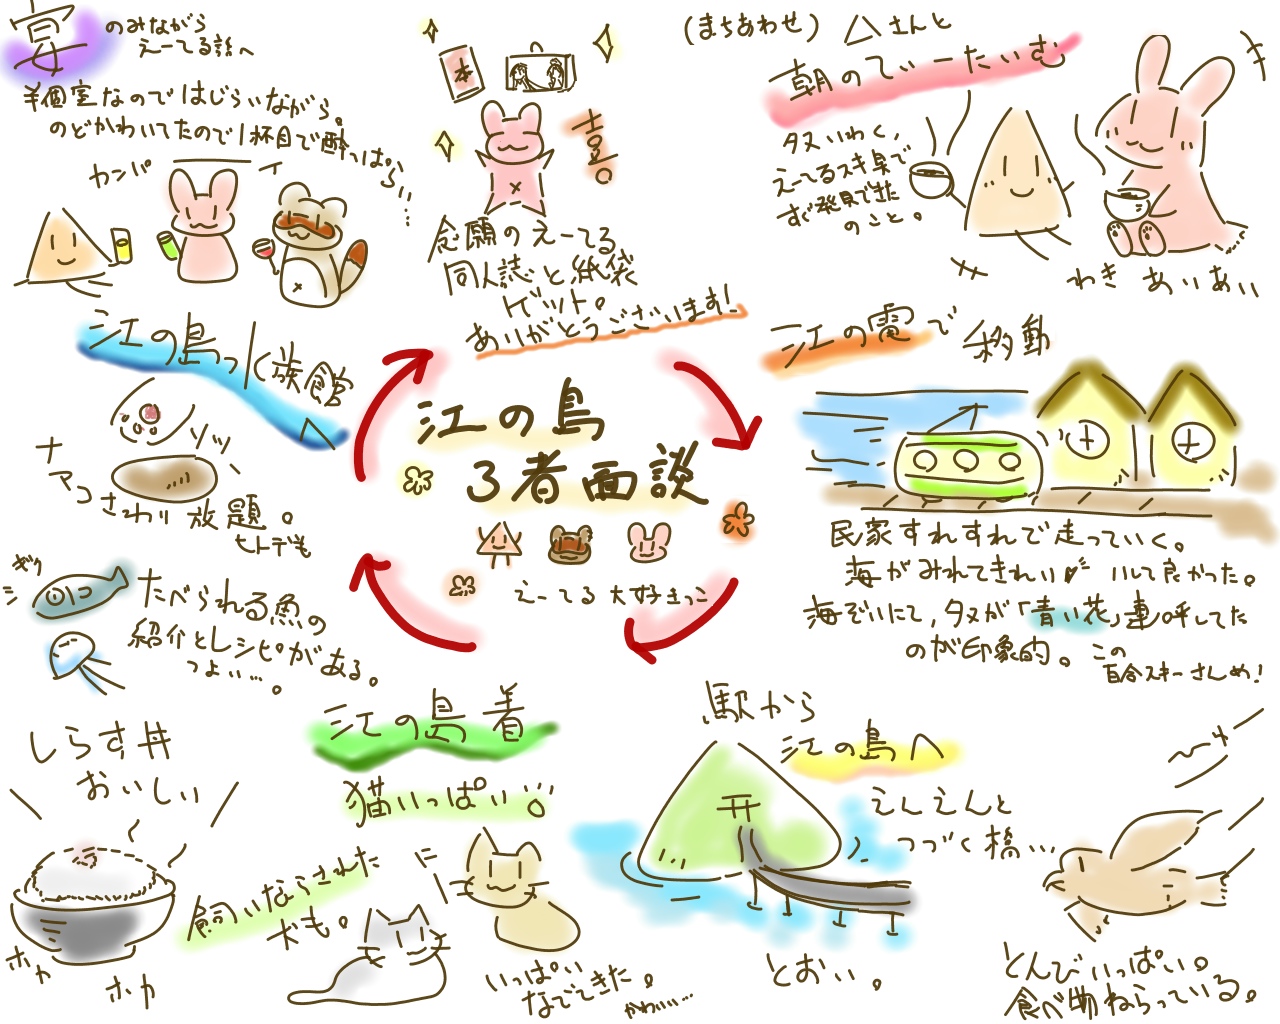 江の島
3者面談
えーてる大好きっこ
(まちあわせ) △さんと
朝のてぃーたいむ
タヌいわく、
えーてるスキ臭で
すぐ発見できた
のこと。
わき あいあい
江の電で移動
民家すれすれで走っていく。
海がみれてきれい いして良かった。
海ぞいにて、タヌが「青い花」連呼してた
のが印象的。この
百合スキーさんめ!
駅から
江の島へ
えんえんと
つづく橋…
とおい。
とんびいっぱい。
食べ物ねらっている。
江の島 着
猫いっぱい…。
飼いならされた
犬も。
いっぱい
なでてきた。
かわいい…
しらす丼
おいしい
ホカ
ホカ
江の島っ水族館へ
ソッ
ナマコさわり放題。
ヒトデも
ギク
シ
たべられる魚の
紹介とレシピがある。
つよい…。
宴
のみながら
えーてる談へ
半個室なのではじらいながら。
のどかわいてたので1杯目で酔っぱらい…
カンパーイ
本
喜。
念願のえーてる
同人誌と紙袋
ゲット。
ありがとうございます!